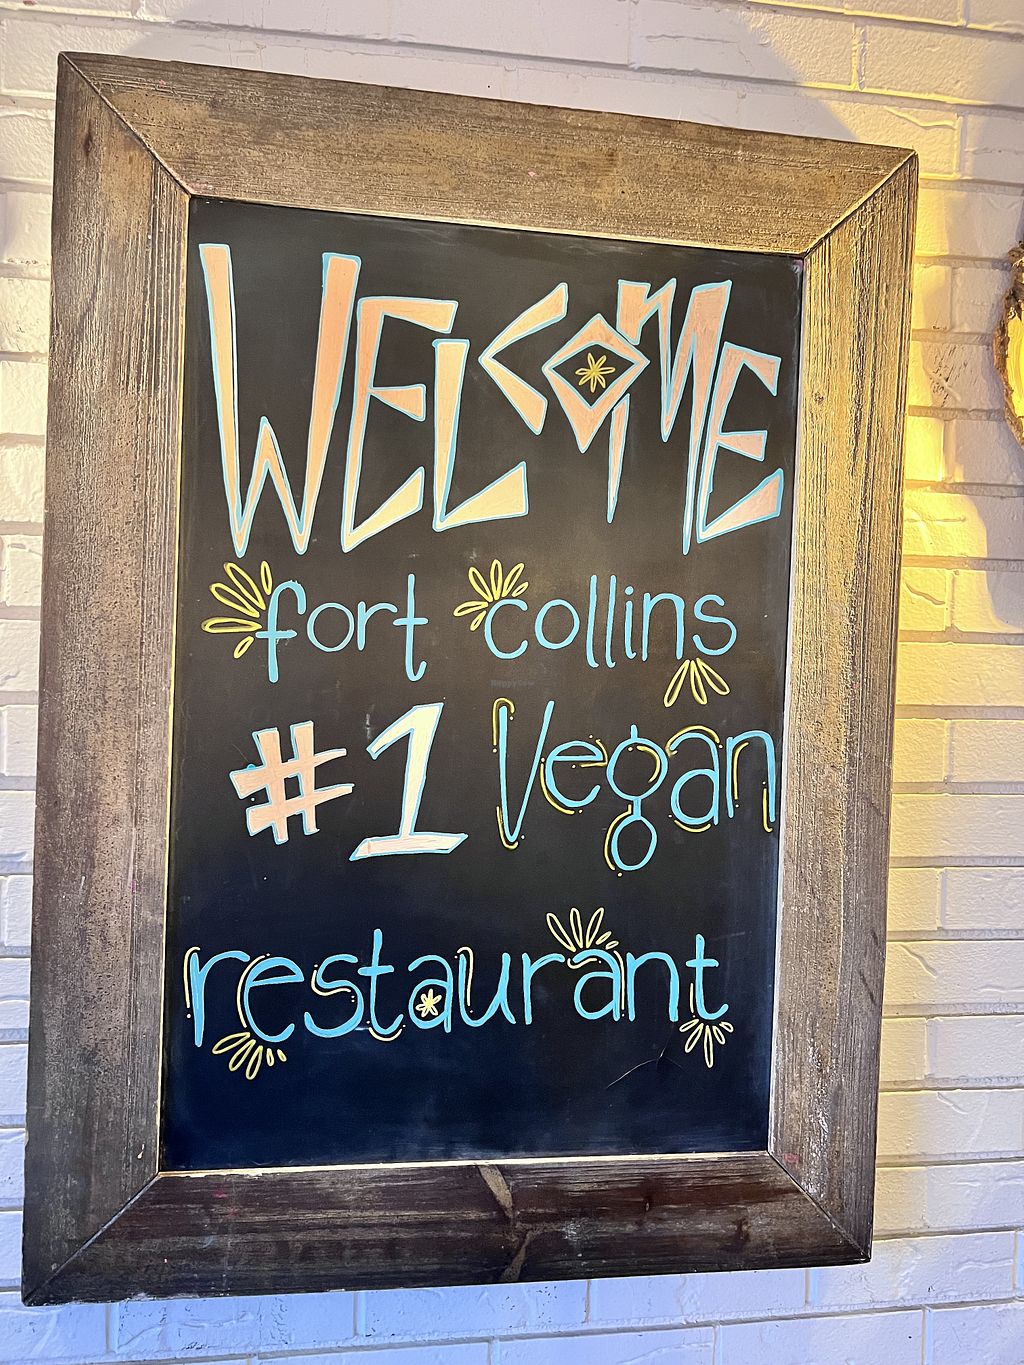 WELCOME
fort collins
#1 Vegan
restaurant